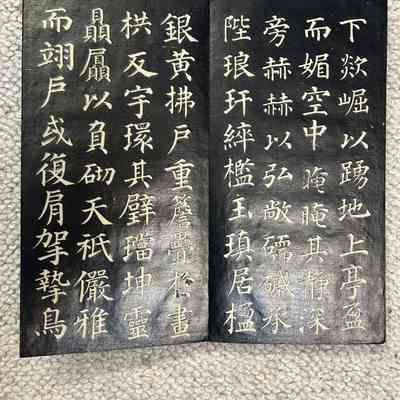 下欻崛以踴地上亭盈
而媚空中晻晻其靜深
旁赫赫以弘敞磩承
陛琅玕綷檻玉瑱居楹
銀黃拂戶重簷疊畫
栱反宇環其璧璫坤靈
贔屭以負砌天祇儼雅
而翊戶或復肩挐摯鳥